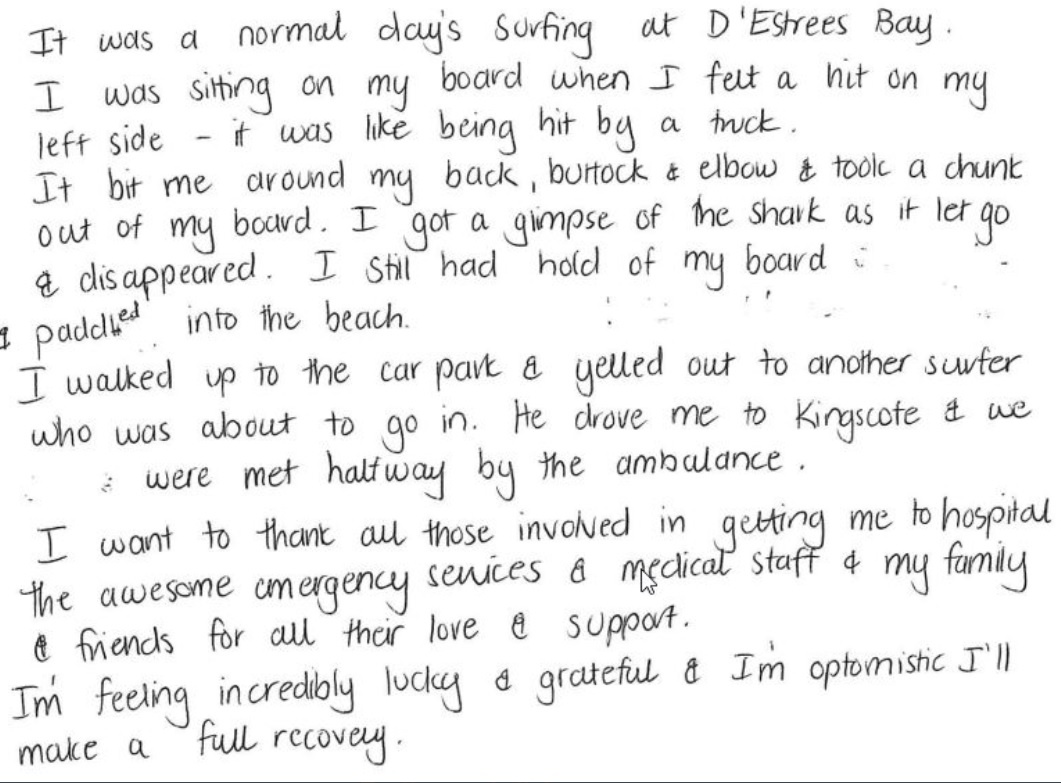 It was a normal day's surfing at D'Estrees Bay.
I was sitting on my board when I felt a hit on my
left side - it was like being hit by a truck.
It bit me around my back, buttock & elbow & took a chunk
out of my board. I got a glimpse of the shark as it let go
& disappeared. I still had hold of my board
& paddled into the beach.
I walked up to the car park & yelled out to another surfer
who was about to go in. He drove me to Kingscote & we
were met halfway by the ambulance.
I want to thank all those involved in getting me to hospital
the awesome emergency services & medical staff & my family
& friends for all their love & support.
I'm feeling incredibly lucky & grateful & I'm optomistic I'll
make a full recovery.